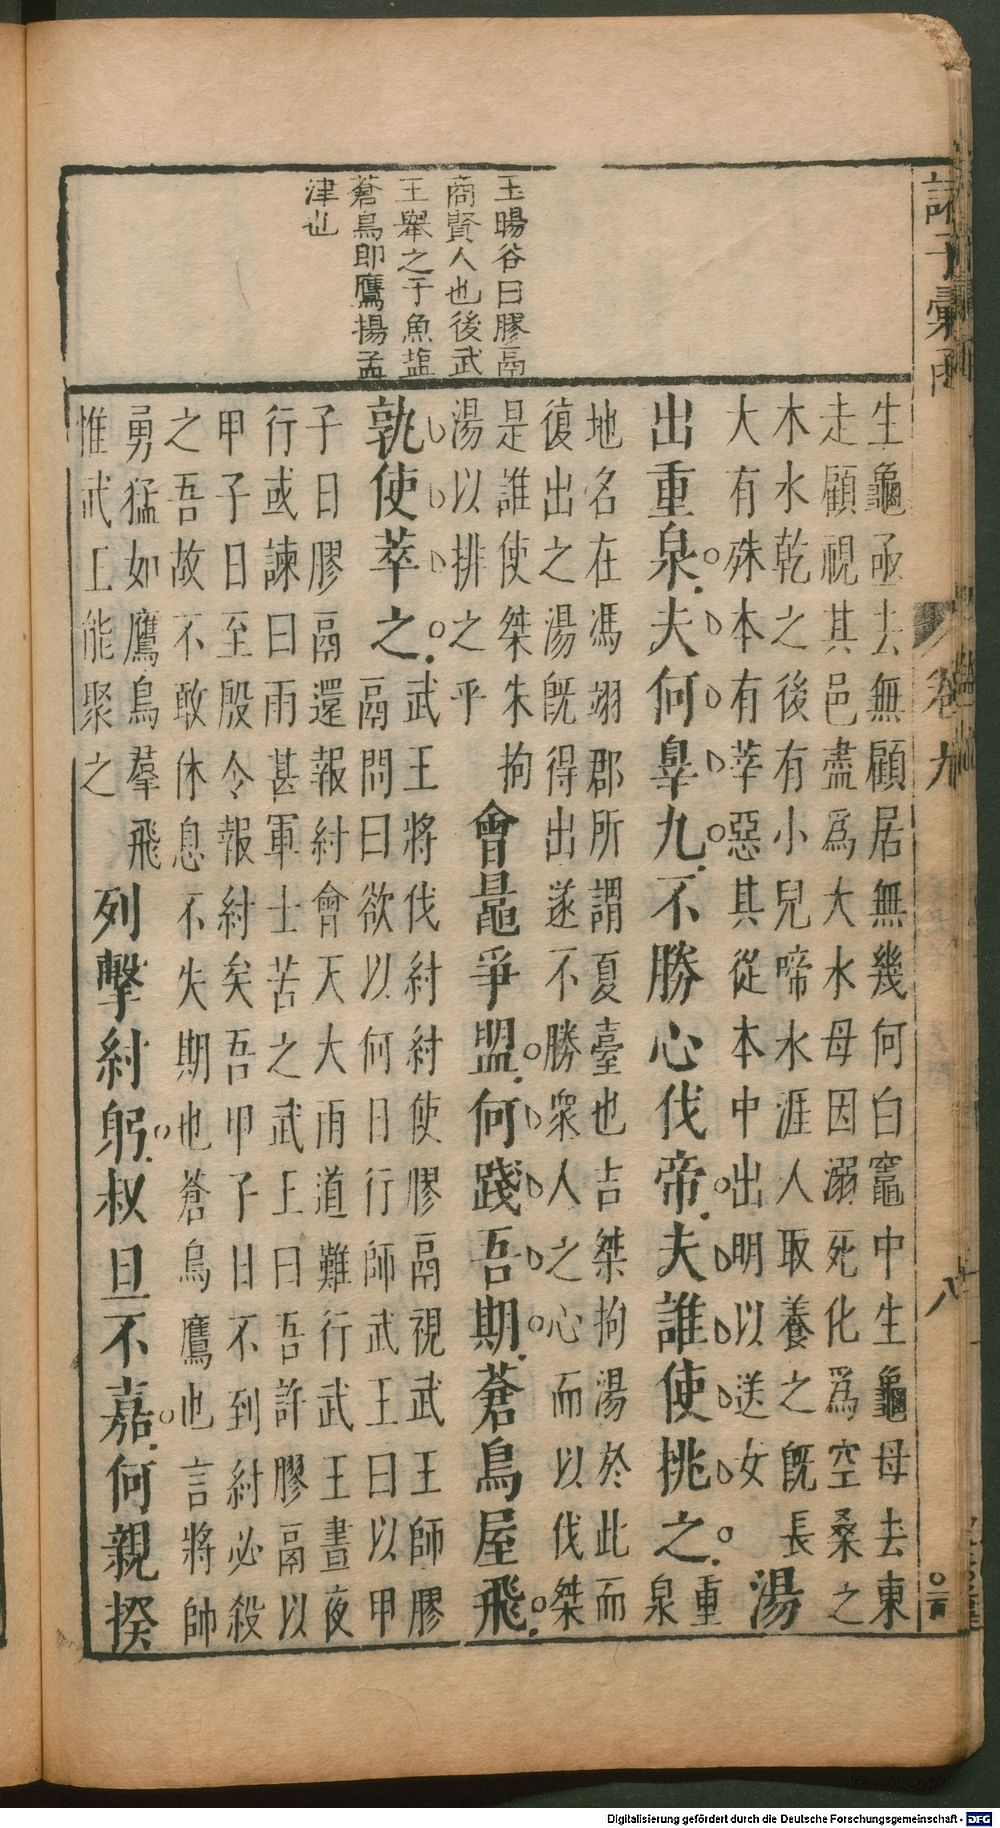 諸子彙函
卷九
八
王暘谷曰膠鬲
商賢人也後武
王舉之于魚盐
蒼鳥即鷹揚孟
津也
生龜亟去無顧居無幾何臼竈中生龜母去東
走顧視其邑盡爲大水母因溺死化爲空桑之
木水乾之後有小兒啼水涯人取養之既長
大有殊本有莘惡其從本中出明以送女
湯
出重泉夫何辠九不勝心伐帝夫誰使挑之
重
泉
地名在馮翊郡所謂夏臺也吉桀拘湯於此而
復出之湯既得出遂不勝衆人之心而以伐桀
是誰使桀朱拘
湯以排之乎
會鼂爭盟何踐吾期蒼鳥屋飛
孰使萃之
武王將伐紂紂使膠鬲視武王師膠
鬲問曰欲以何日行師武王曰以甲
子日膠鬲還報紂會天大雨道難行武王晝夜
行或諫曰雨甚軍士苦之武王曰吾許膠鬲以
甲子日至殷令報紂矣吾甲子日不到紂必殺
之吾故不敢休息不失期也蒼鳥鷹也言將帥
勇猛如鷹鳥羣飛
惟武王能聚之
列擊紂躬叔旦不嘉何親揆
Digitalisierung gefördert durch die Deutsche Forschungsgemeinschaft - DFG